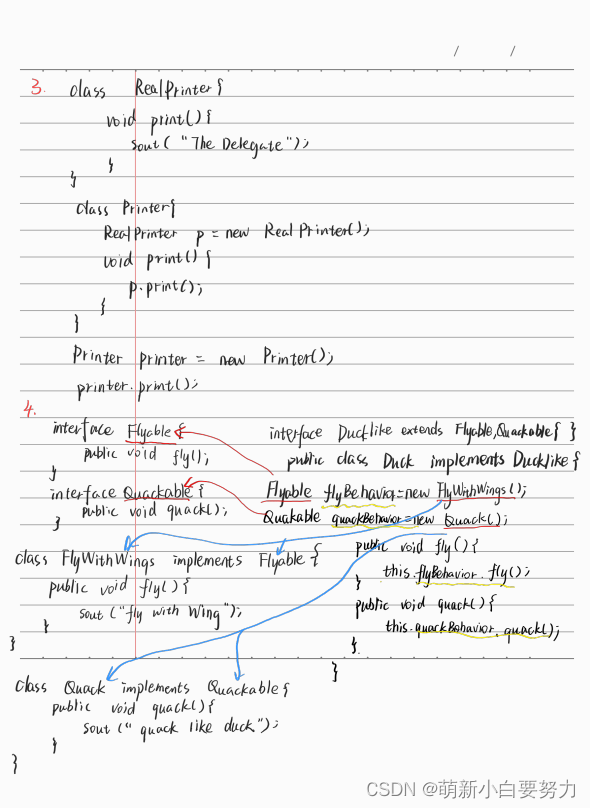 / /
3. class RealPrinter{
void print(){
sout( "The Delegate");
}
}
class Printer{
RealPrinter p = new RealPrinter();
void print() {
p.print();
}
}
Printer printer = new Printer();
printer.print();
4.
interface Flyable {
public void fly();
}
interface Quackable {
public void quack();
}
class FlyWithWings implements Flyable {
public void fly() {
sout ("fly with Wing");
}
}
class Quack implements Quackable {
public void quack() {
sout (" quack like duck");
}
}
interface Ducklike extends Flyable, Quackable { }
public class Duck implements Ducklike {
Flyable flyBehavior = new FlyWithWings();
Quakable quackBehavior = new Quack();
public void fly() {
this.flyBehavior.fly();
}
public void quack() {
this.quackBehavior.quack();
}
}
CSDN @萌新小白要努力